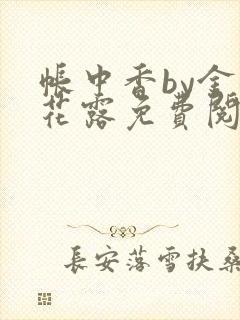 帳中香by金
花露免費閱
長安落雪扶桑